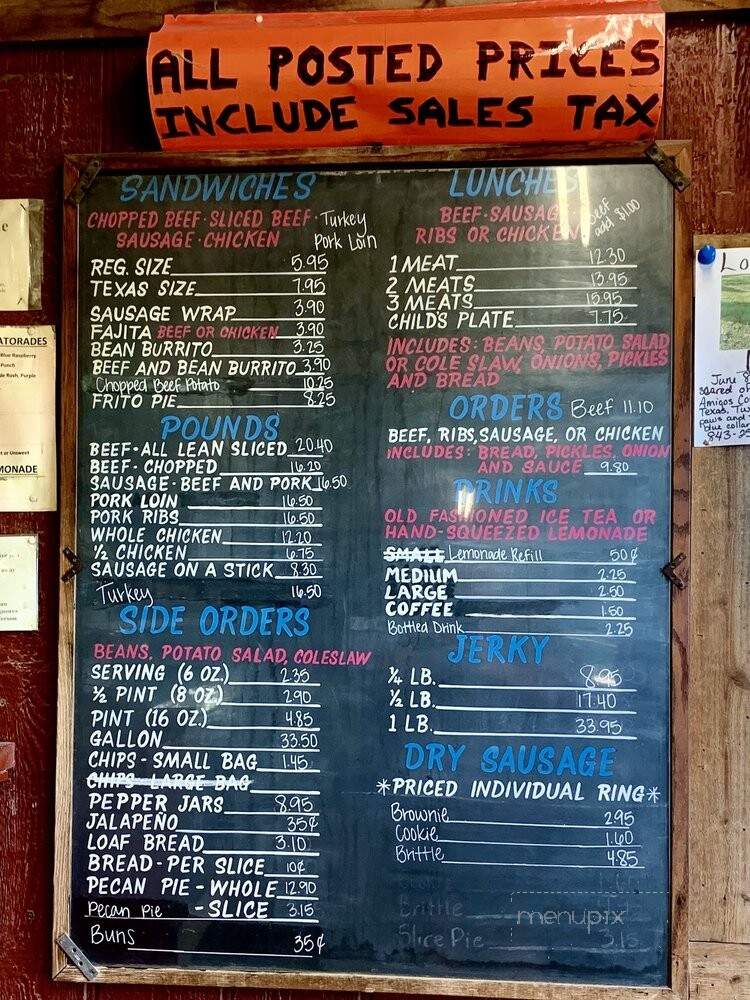 ALL POSTED PRICES
INCLUDE SALES TAX
SANDWICHES
CHOPPED BEEF · SLICED BEEF · Turkey
SAUSAGE · CHICKEN Pork Loin
REG. SIZE 5.95
TEXAS SIZE 7.95
SAUSAGE WRAP 3.90
FAJITA BEEF OR CHICKEN 3.90
BEAN BURRITO 3.25
BEEF AND BEAN BURRITO 3.90
Chopped Beef Potato 10.25
FRITO PIE 8.25
POUNDS
BEEF - ALL LEAN SLICED 20.40
BEEF - CHOPPED 16.20
SAUSAGE - BEEF AND PORK 16.50
PORK LOIN 16.50
PORK RIBS 16.50
WHOLE CHICKEN 12.20
½ CHICKEN 6.75
SAUSAGE ON A STICK 8.30
Turkey 16.50
SIDE ORDERS
BEANS, POTATO SALAD, COLESLAW
SERVING (6 OZ.) 2.35
½ PINT (8 OZ.) 2.90
PINT (16 OZ.) 4.85
GALLON 33.50
CHIPS - SMALL BAG 1.45
CHIPS - LARGE BAG
PEPPER JARS 8.95
JALAPEÑO 35¢
LOAF BREAD 3.10
BREAD - PER SLICE 10¢
PECAN PIE - WHOLE 12.90
Pecan Pie - SLICE 3.15
Buns 35¢
LUNCHES
BEEF · SAUSAGE Beef
RIBS OR CHICKEN add $1.00
1 MEAT 12.30
2 MEATS 13.95
3 MEATS 15.95
CHILD'S PLATE 7.75
INCLUDES: BEANS, POTATO SALAD
OR COLE SLAW, ONIONS, PICKLES
AND BREAD
ORDERS Beef 11.10
BEEF, RIBS, SAUSAGE, OR CHICKEN
INCLUDES: BREAD, PICKLES, ONION
AND SAUCE 9.80
DRINKS
OLD FASHIONED ICE TEA OR
HAND-SQUEEZED LEMONADE
SMALL Lemonade Refill 50¢
MEDIUM 2.25
LARGE 2.50
COFFEE 1.50
Bottled Drink 2.25
JERKY
¼ LB. 8.95
½ LB. 17.40
1 LB. 33.95
DRY SAUSAGE
*PRICED INDIVIDUAL RING*
Brownie 2.95
Cookie 1.60
Brittle 4.85
Brittle
Slice Pie 3.15
menupix
ATORADES
Blue Raspberry
Punch
de Rush, Purple
et or Unsweet
MONADE
Lo
June 8
scared of
Amigos Co
Texas. Tu
paws and
blue collar
843-25